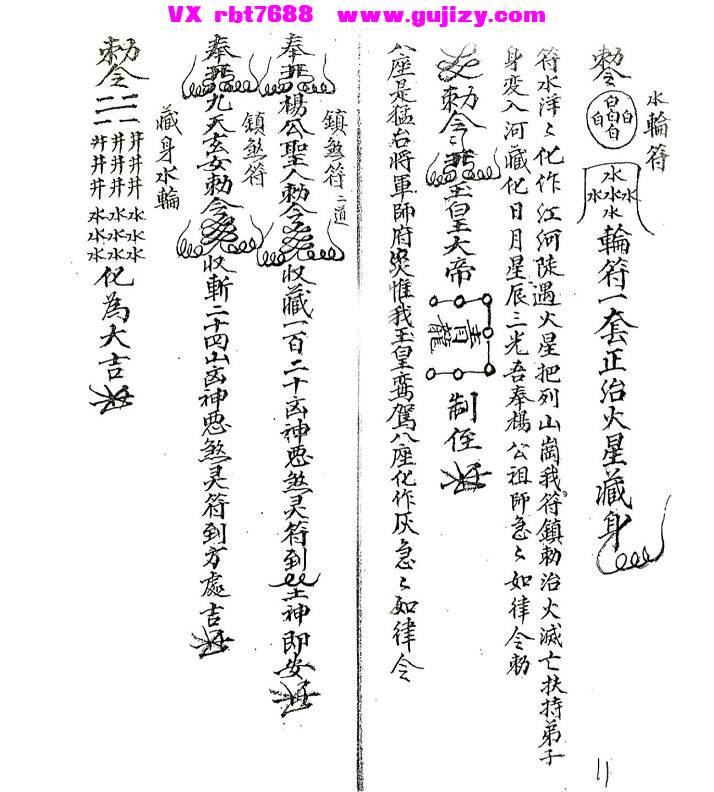 VX rbt7688 www.gujizy.com
水輪符
勅令 白白白白白 水水水水水輪符一套正治火星藏身
符水洋〻化作江河陡遇火星把列山崗我符鎮勅治火滅亡扶持弟子
身变入河藏化日月星辰三光吾奉楊公祖師急〻如律令勅
勅令〻玉皇大帝 青龍 制任
八座是猛台將軍師府災惟我玉皇鸞駕八座化作灰急〻如律令
鎮煞符二道
奉楊公聖人勅令收藏一百二十凶神恶煞灵符到土神即安
鎮煞符
奉九天玄女勅令收斬二十四山凶神恶煞灵符到方處吉
藏身水輪
勅令二二井井井井井井井井井水水水水水水水水水化為大吉
11